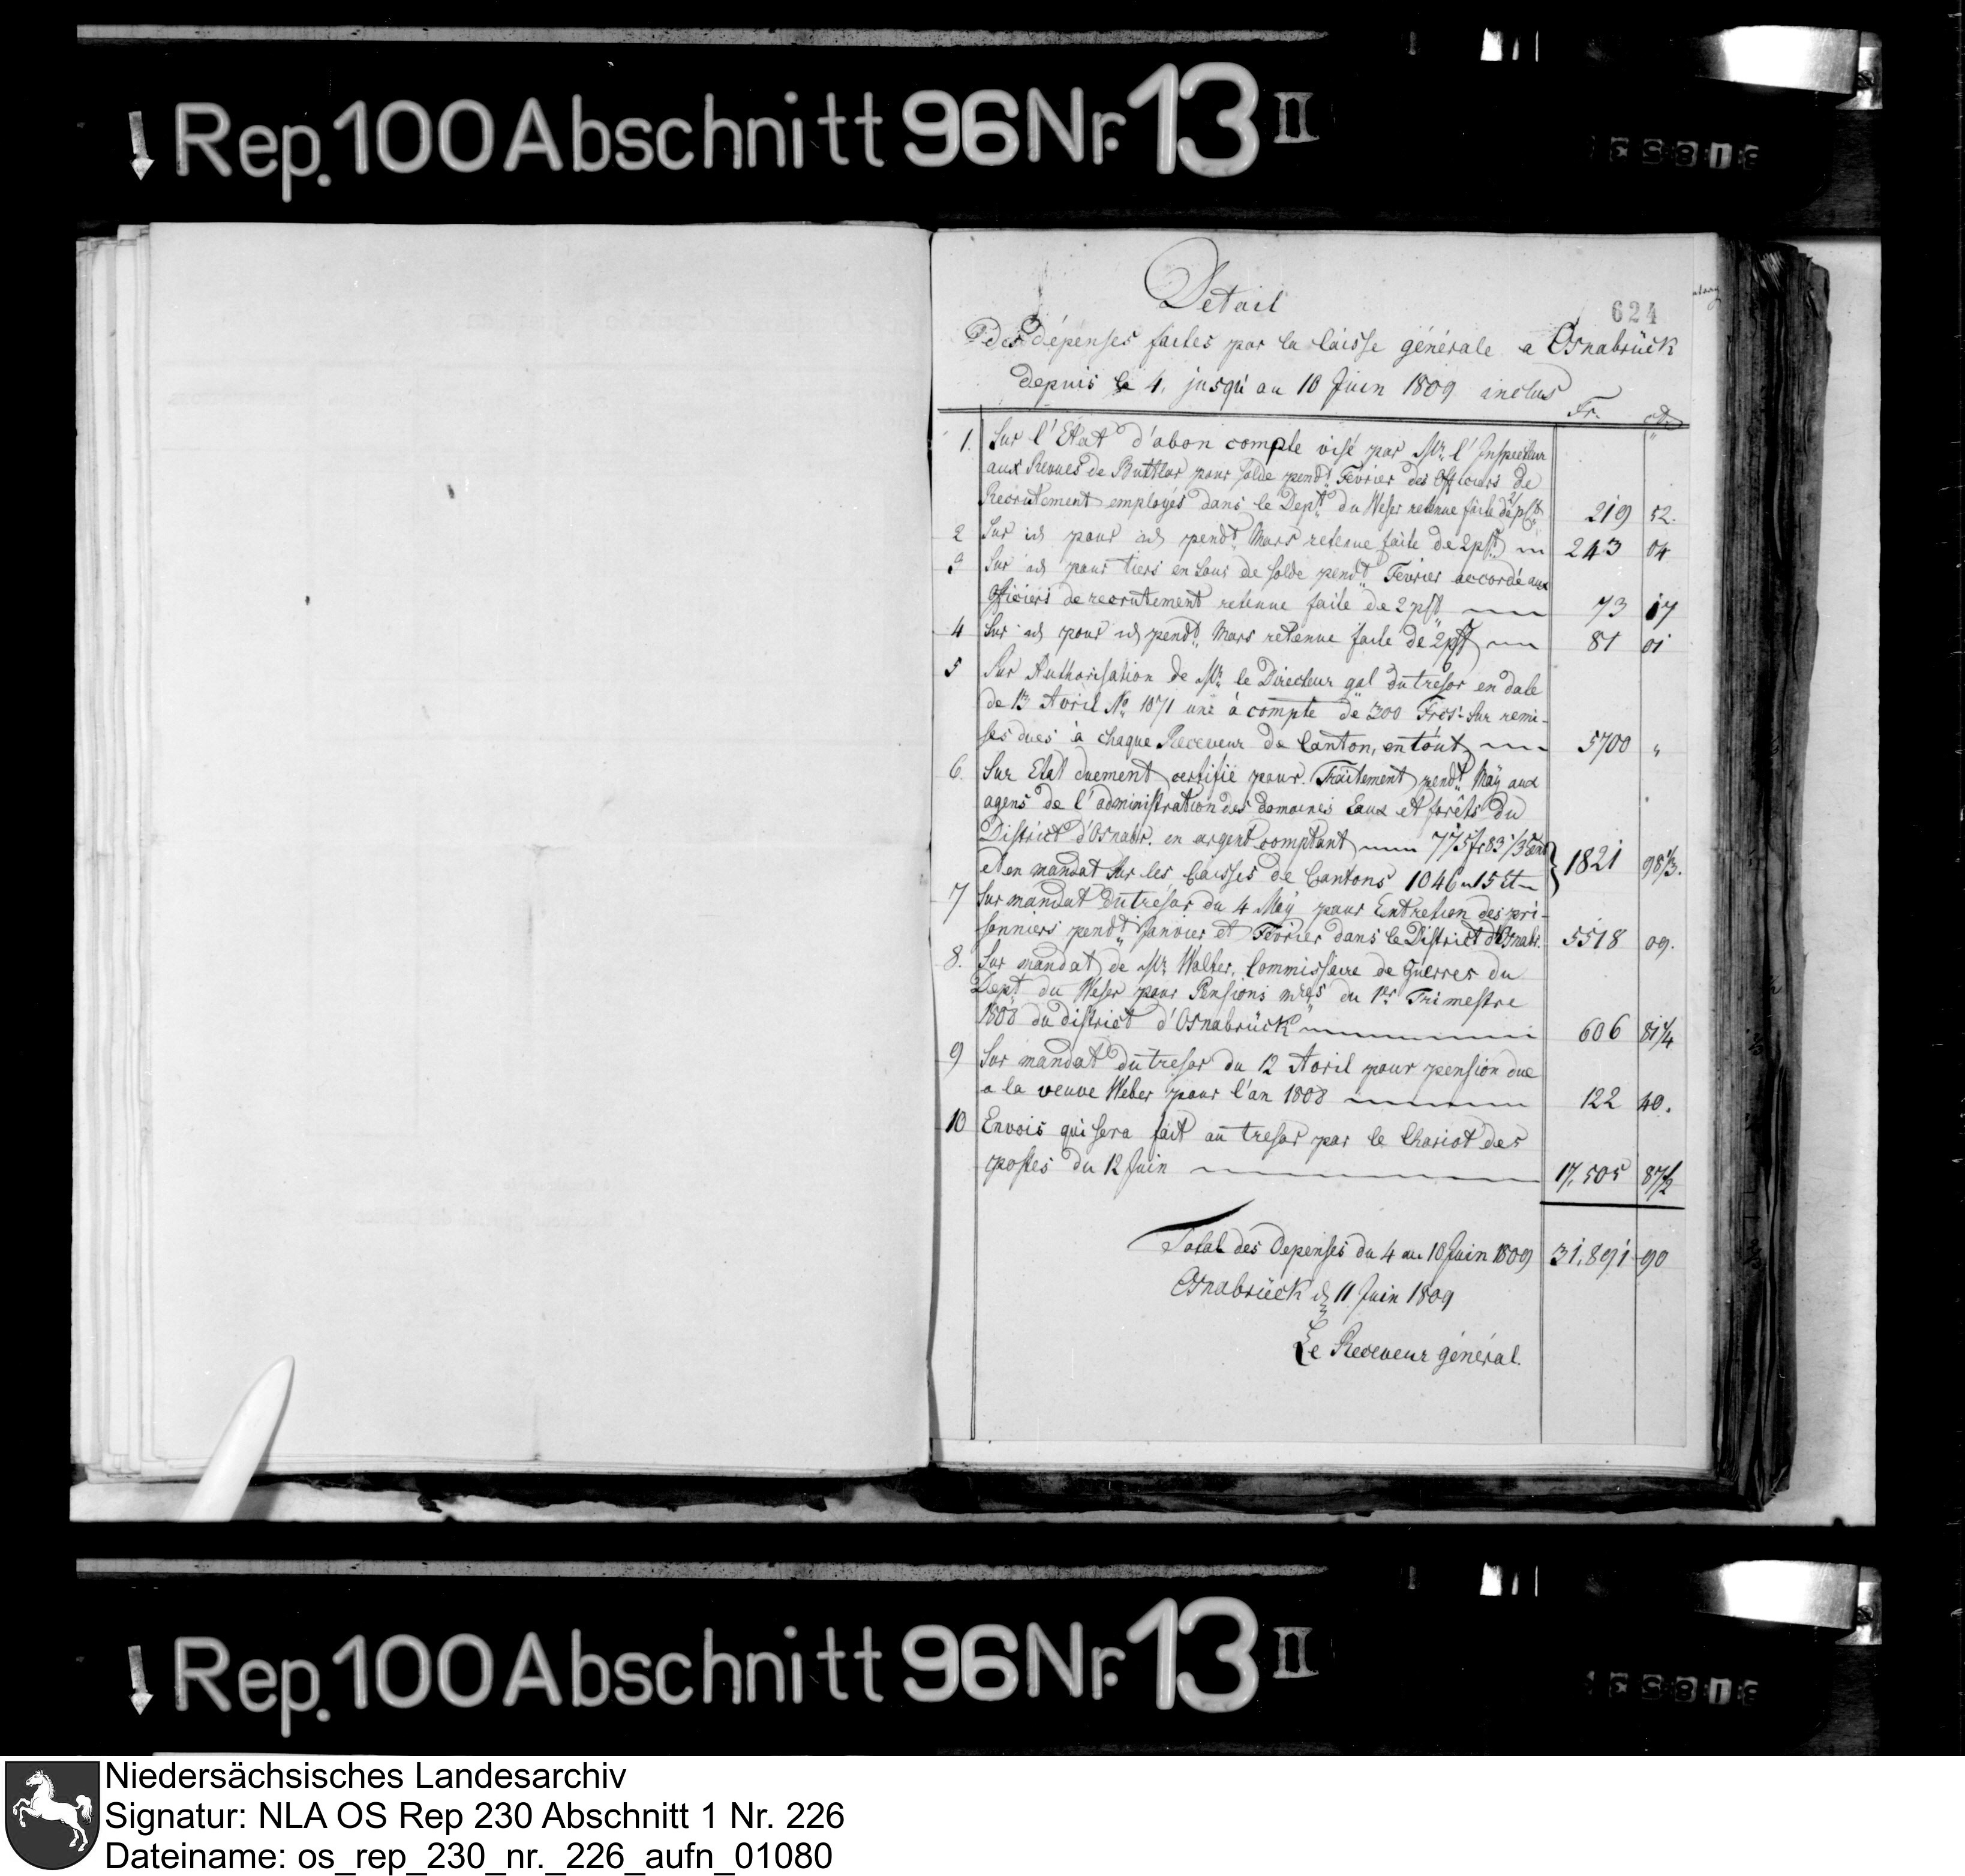 Rep. 100 Abschnitt 96 Nr. 13 II
624
Detail
des dépenses faites par la Caisse générale a Osnabrück
depuis le 4. jusqu'au 10 Juin 1809 inclus
Fr. Ct.
1. Sur l'Etat d'abon compte visé par Mr. l'Inspecteur
aux Revues de Buttlar pour solde pendt. Fevrier des Officiers de
Recrutement employés dans le Dept. du Weser retenue faite de 2 pCt. 219 52.
2 Sur id pour id pendt. Mars retenue faite de 2 pCt. 243 04
3 Sur id pour tiers en sous de solde pendt. Fevrier accordé aux
officiers de recrutement retenue faite de 2 pCt. 73 17
4 Sur id pour id pendt. Mars retenue faite de 2 pCt. 81 01
5 Sur Authorisation de Mr. le Directeur gal du tresor en date
de 13 Avril No. 1071 une à compte de 300 Frcs. sur remi-
ses dues à chaque Receveur de Canton, en tout 5700 "
6. Sur Etat duement certifié pour Traitement pendt. Maÿ aux
agens de l'administration des domaines Eaux et forêts du
District d'Osnabr. en argent comptant 775 fr 83 1/3 Cent
et en mandat sur les Caisses de Cantons 1046 " 15 Ct } 1821 98 1/3.
7 Sur mandat du trésor du 4 Maÿ pour Entretien des pri-
sonniers pendt. Janvier et Fevrier dans le District d'Osnabr. 5518 09.
8. Sur mandat de Mr. Walter, Commissaire de Guerres du
Dept. du Weser pour Pensions mres du 1er Trimestre
1808 du district d'Osnabrück 606 81 1/4
9 Sur mandat du tresor du 12 Avril pour pension due
a la veuve Weber pour l'an 1808 122 40.
10 Envois qui sera fait au tresor par le Chariot des
postes du 12 Juin 17,505 87 1/2
Total des Depenses du 4 au 10 Juin 1809 31,891 90
Osnabrück d 11 Juin 1809
Le Receveur général.
Rep. 100 Abschnitt 96 Nr. 13 II
Niedersächsisches Landesarchiv
Signatur: NLA OS Rep 230 Abschnitt 1 Nr. 226
Dateiname: os_rep_230_nr._226_aufn_01080